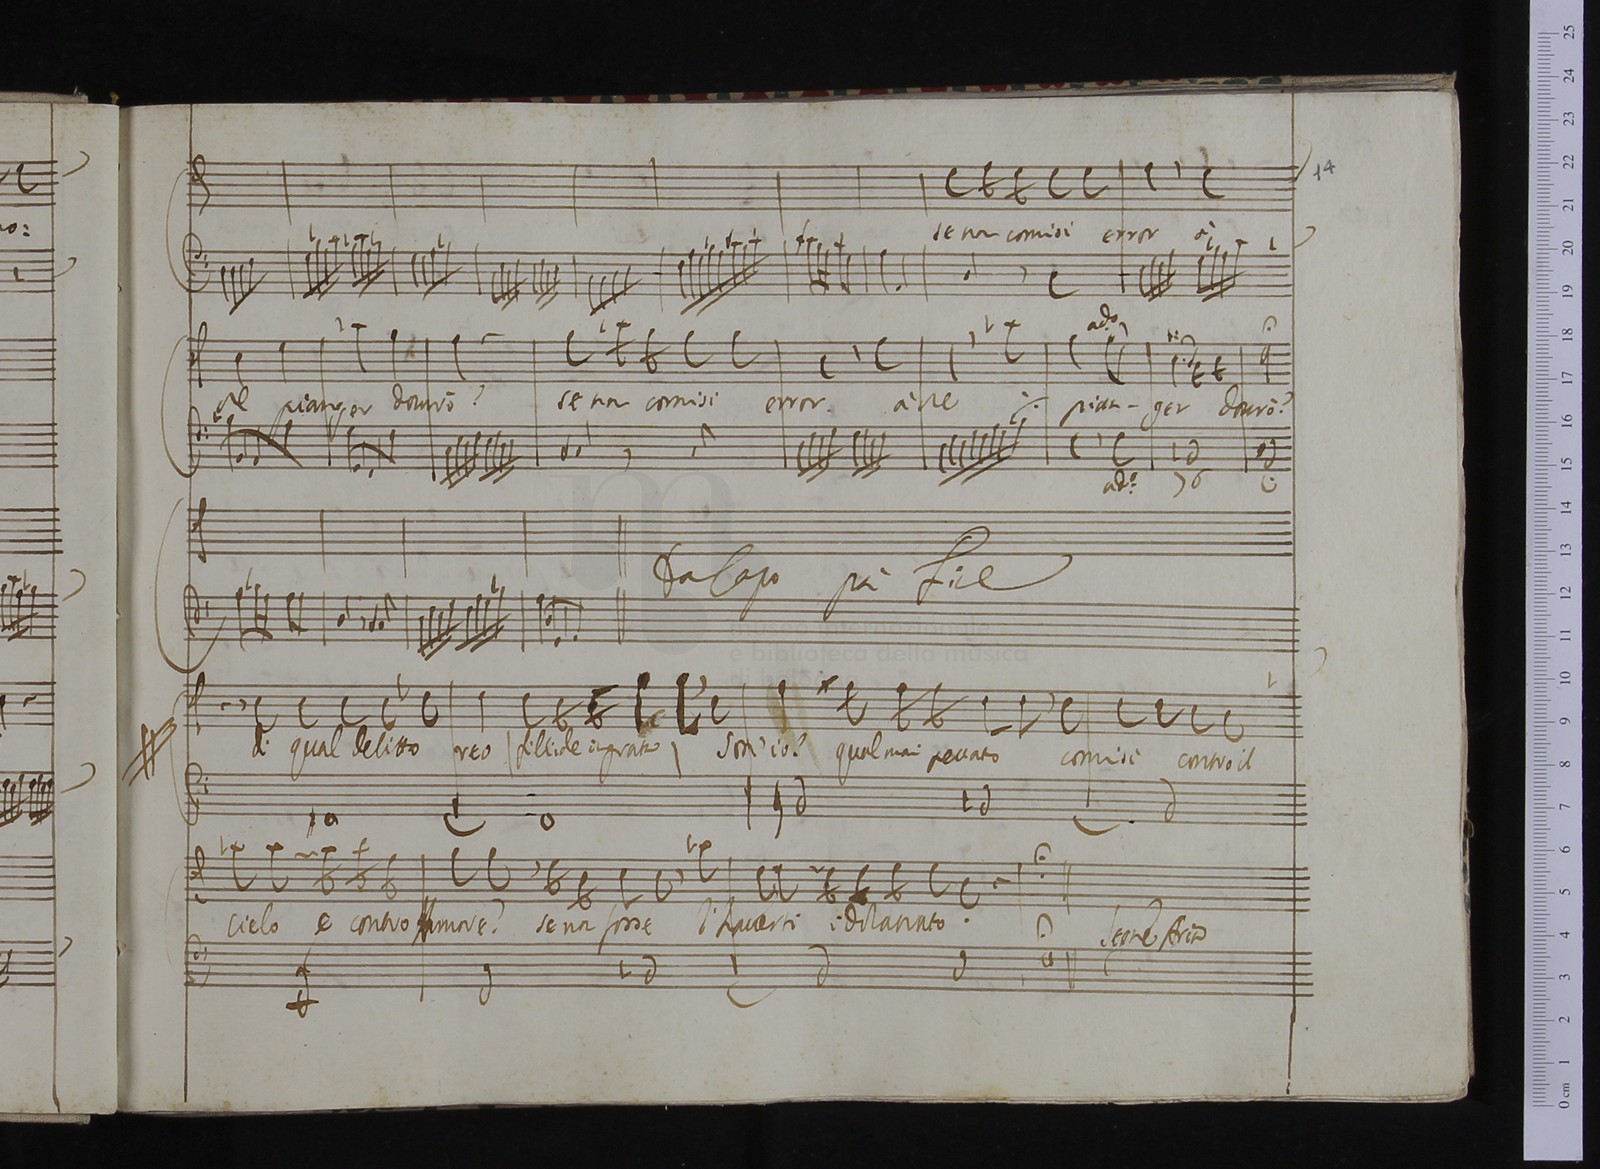 14
se non comisi error à
che pianger dourò? se non comisi error à che pian-ger dourò?
ad.º
ad.º
76
Da Capo
di qual delitto reo fillide ingrata son' io? qual mai peccato comisi contro il
Cielo e contro Amore? se non fosse
Segue Aria
museo internazionale
e biblioteca della musica
di bologna
25
24
23
22
21
20
19
18
17
16
15
14
13
12
11
10
9
8
7
6
5
4
3
2
1
0 cm